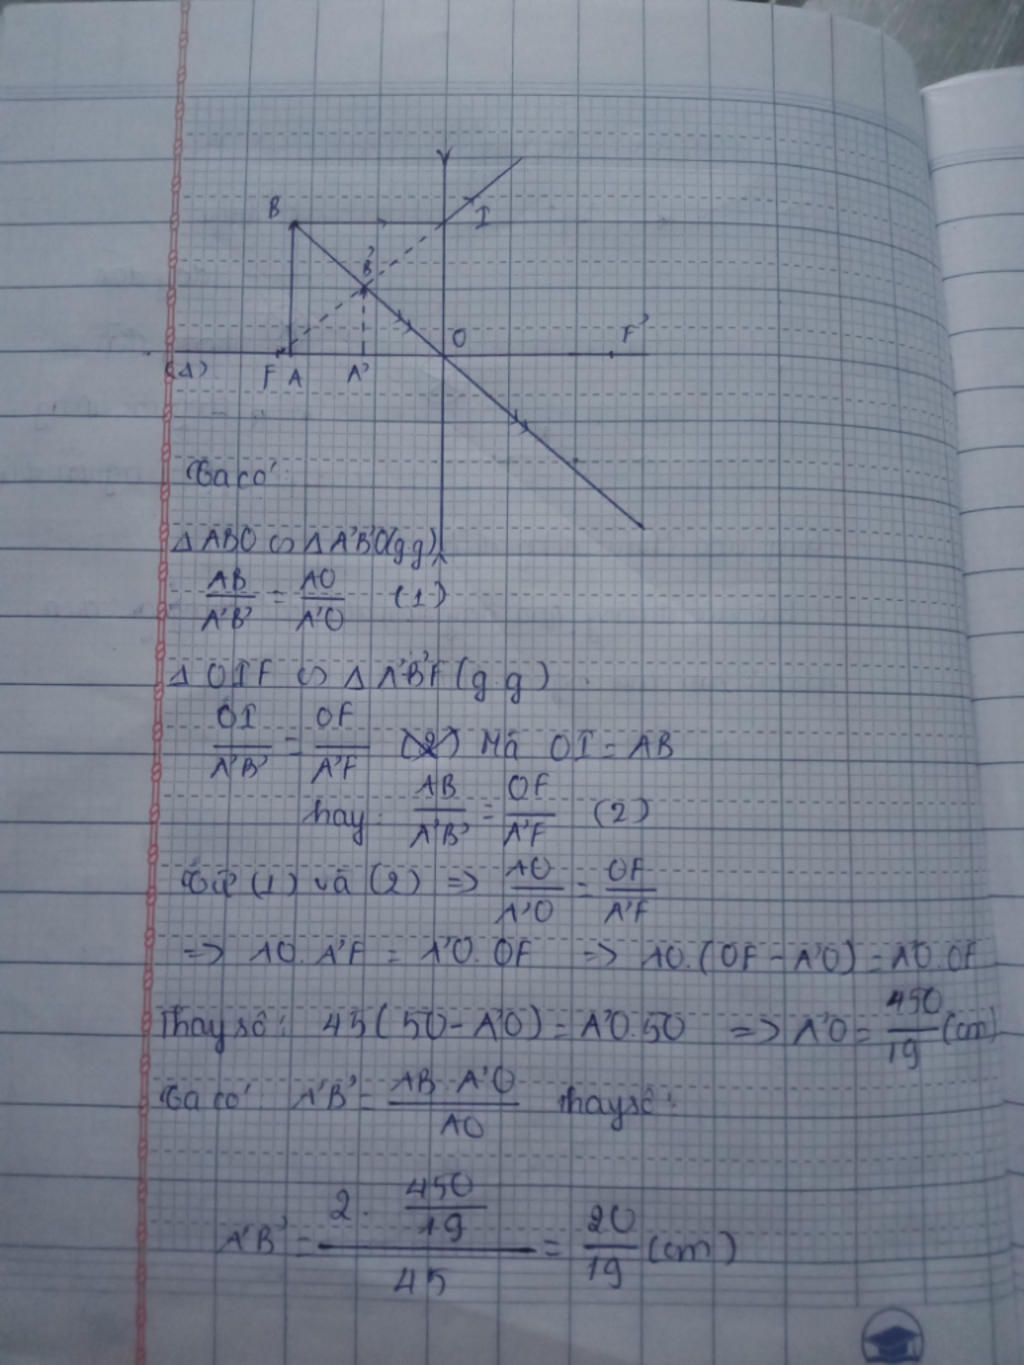 B
I
B'
O
F'
(Δ)
F A
A'
Ta có:
Δ ABO ∽ Δ A'B'O(g.g)
AB/A'B' = AO/A'O (1)
Δ OIF ∽ Δ A'B'F (g.g)
OI/A'B' = OF/A'F (2) Mà OI = AB
hay: AB/A'B' = OF/A'F (2)
Từ (1) và (2) => AO/A'O = OF/A'F
=> AO. A'F = A'O. OF => AO.(OF - A'O) = A'O.OF
Thay số: 45(50 - A'O) = A'O.50 => A'O = 450/19 (cm)
Ta có: A'B' = AB . A'O/AO thay số:
A'B' = 2. 450/19 / 45 = 20/19 (cm)